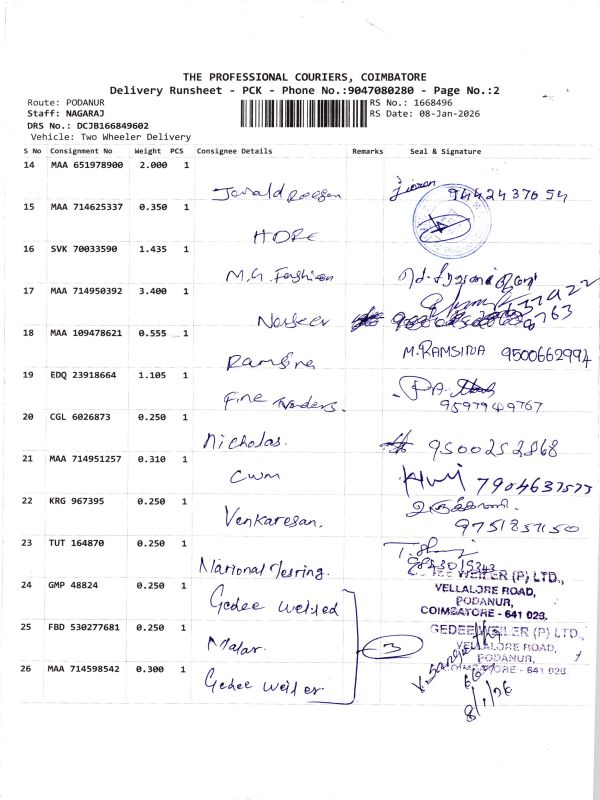 THE PROFESSIONAL COURIERS, COIMBATORE
Delivery Runsheet - PCK - Phone No.:9047080280 - Page No.:2
Route: PODANUR
Staff: NAGARAJ
DRS No.: DCJB166849602
Vehicle: Two Wheeler Delivery
RS No.: 1668496
RS Date: 08-Jan-2026
S No Consignment No Weight PCS Consignee Details Remarks Seal & Signature
14 MAA 651978900 2.000 1
9442437654
15 MAA 714625337 0.350 1
HDFC
16 SVK 70033590 1.435 1
M.G. Fashion
17 MAA 714950392 3.400 1
Naseer
18 MAA 109478621 0.555 1
Ramsina M.RAMSINA 9500662994
19 EDQ 23918664 1.105 1
Fine Traders. 9597949767
20 CGL 6026873 0.250 1
Nicholas. 9500252868
21 MAA 714951257 0.310 1
CWM 7904637577
22 KRG 967395 0.250 1
Venkatesan. 9751851150
23 TUT 164870 0.250 1
National Testing.
24 GMP 48824 0.250 1
Gedee Weiled
GEDEE WEILER (P) LTD.,
VELLALORE ROAD,
PODANUR,
COIMBATORE - 641 023.
25 FBD 530277681 0.250 1
Malar. 3
GEDEE WEILER (P) LTD.,
VELLALORE ROAD,
PODANUR,
COIMBATORE - 641 023.
26 MAA 714598542 0.300 1
Gedee Weiler
8/1/26